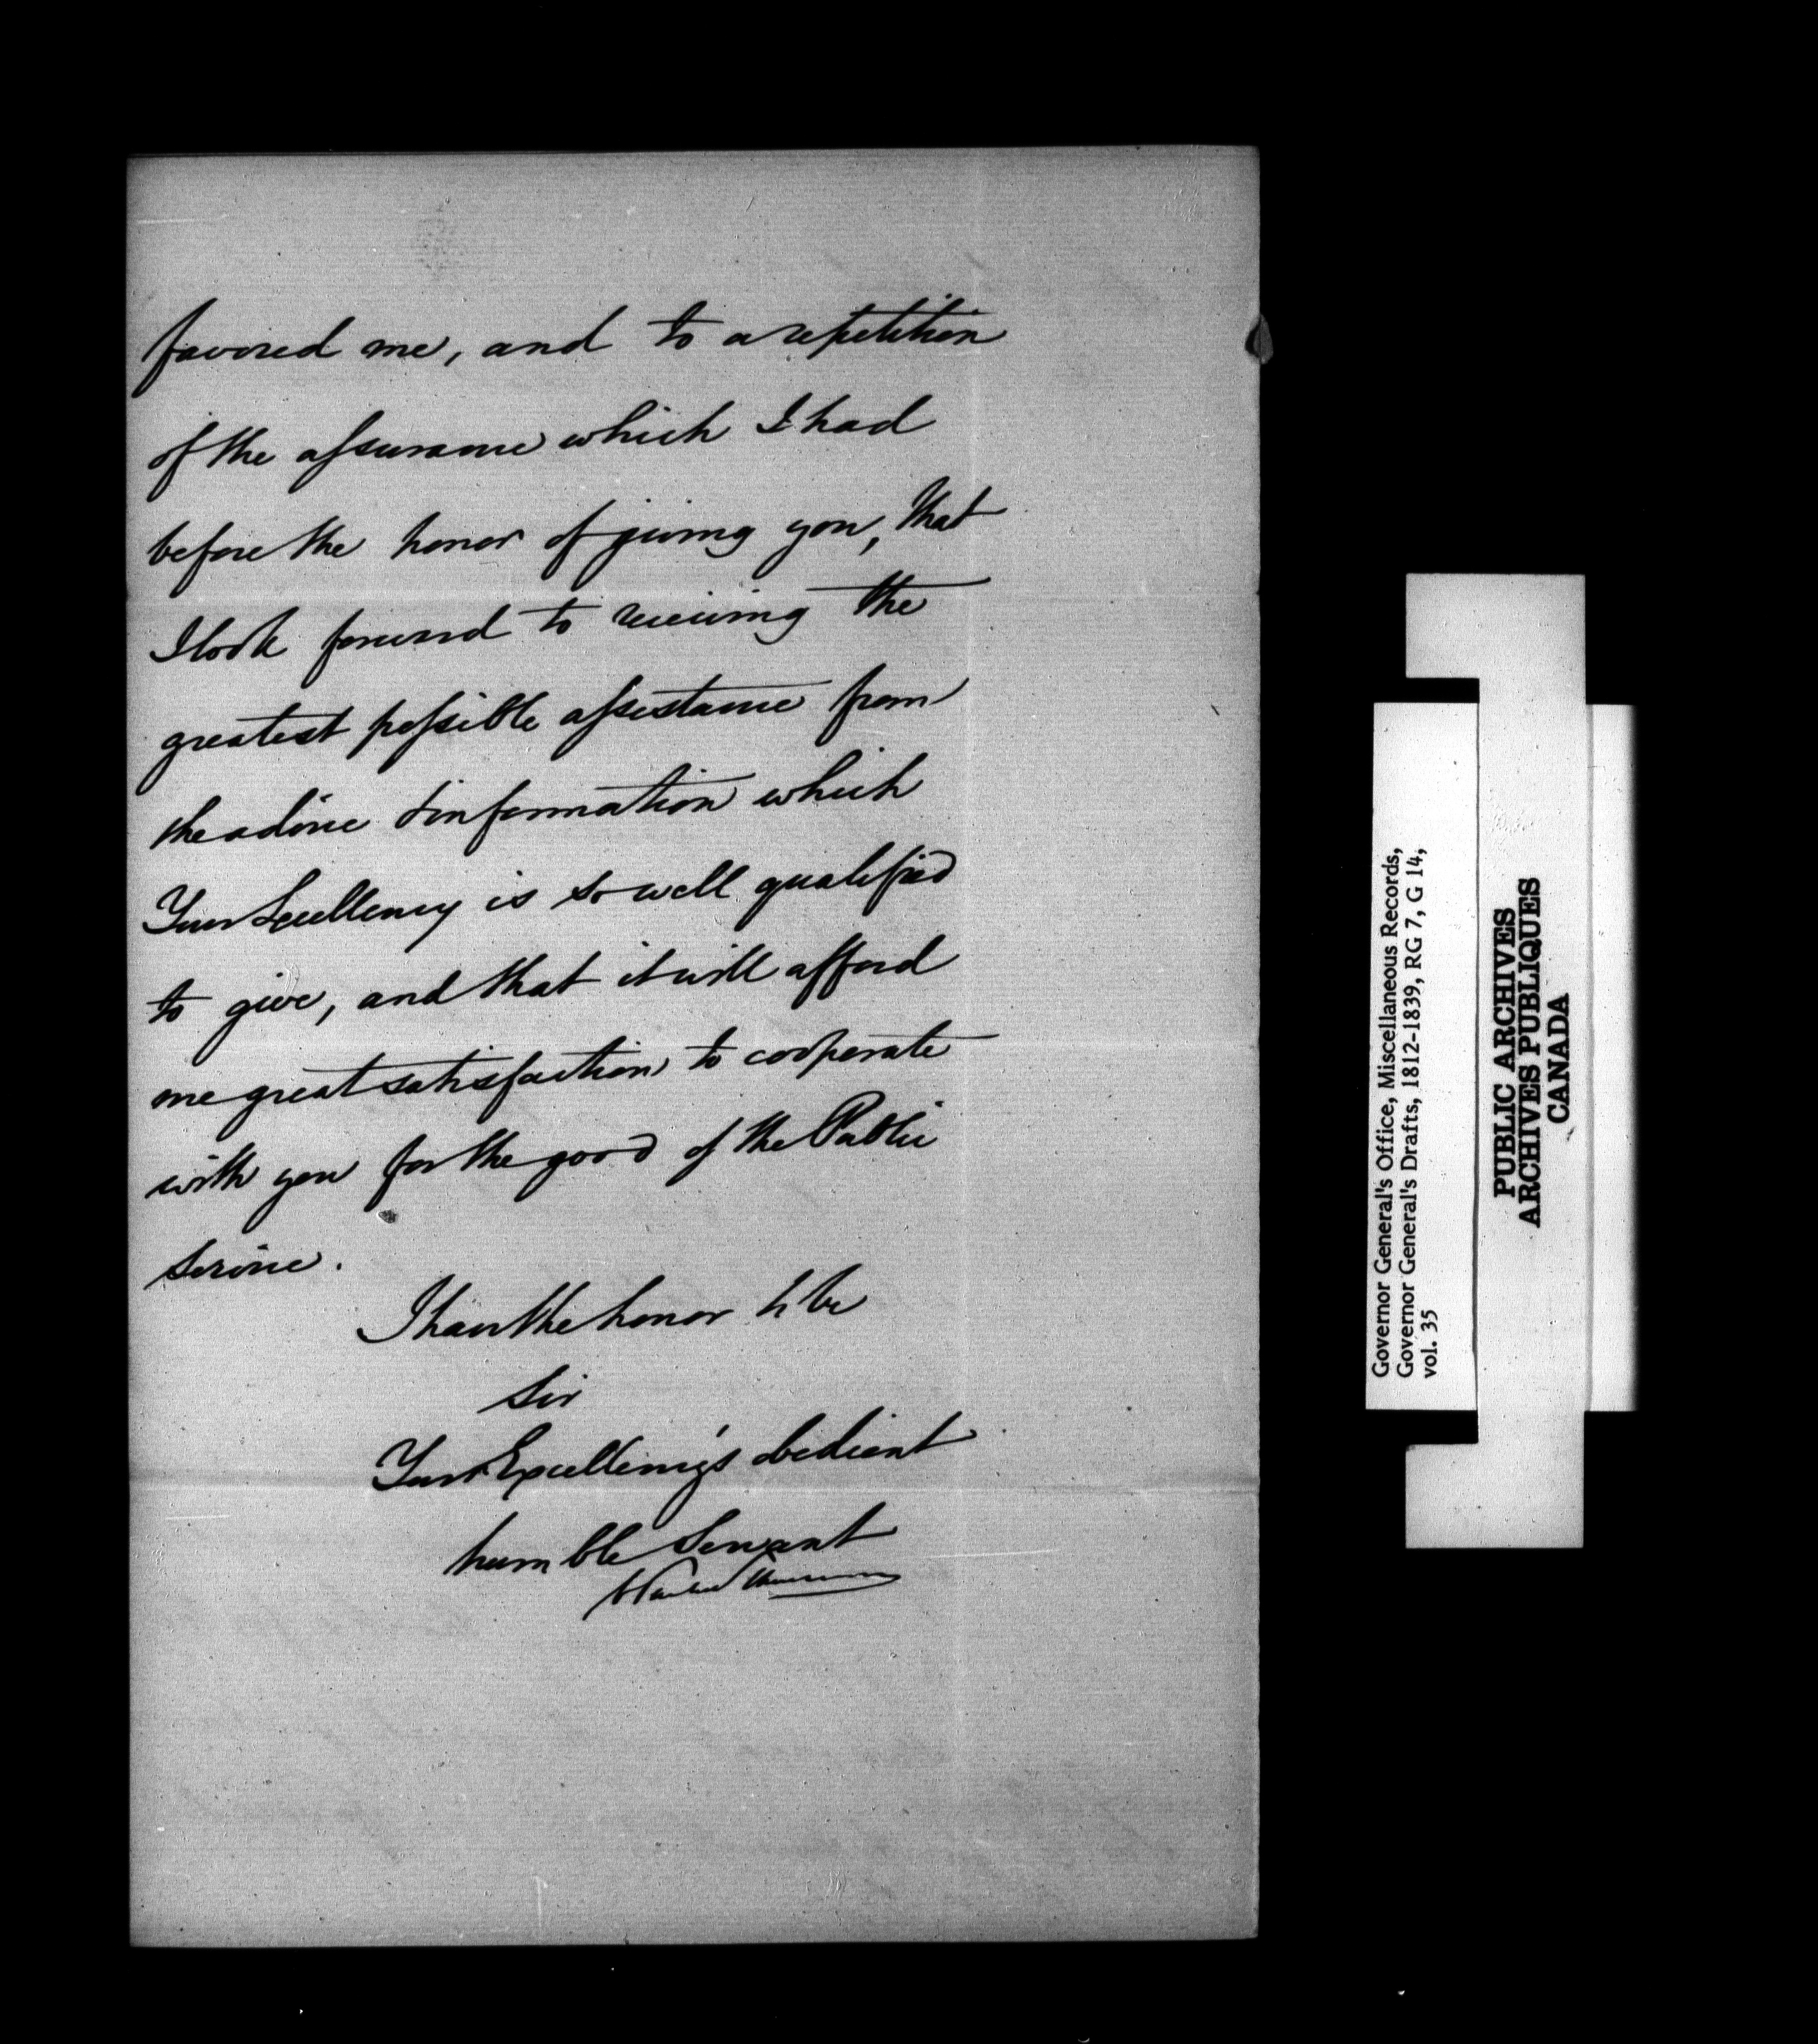 favored me, and to a repetition
of the assurance which I had
before the honor of giving you, that
I look forward to receiving the
greatest possible assistance from
the advice & information which
Your Excellency is so well qualified
to give, and that it will afford
me great satisfaction to cooperate
with you for the good of the Public
Service.
I have the honor to be
Sir
Your Excellency's obedient
humble Servant
Governor General's Office, Miscellaneous Records,
Governor General's Drafts, 1812-1839, RG 7, G 14,
vol. 35
PUBLIC ARCHIVES
ARCHIVES PUBLIQUES
CANADA